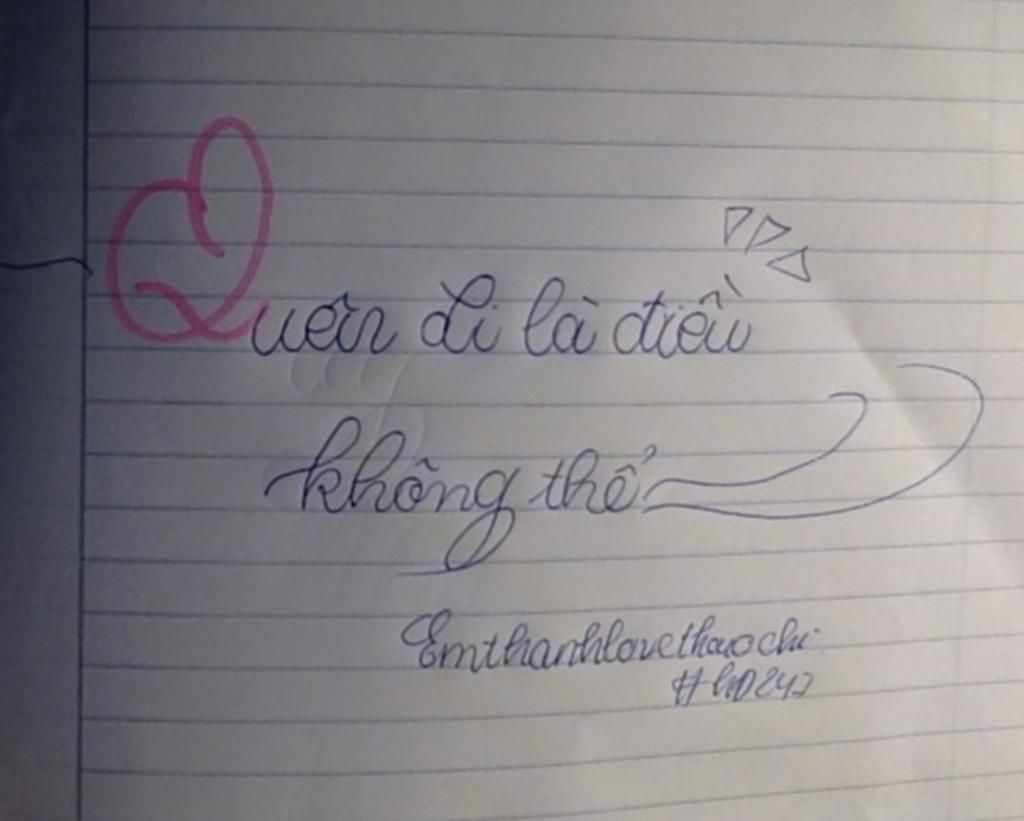 Quên đi là điều
không thể
Emthanhlovethaochi